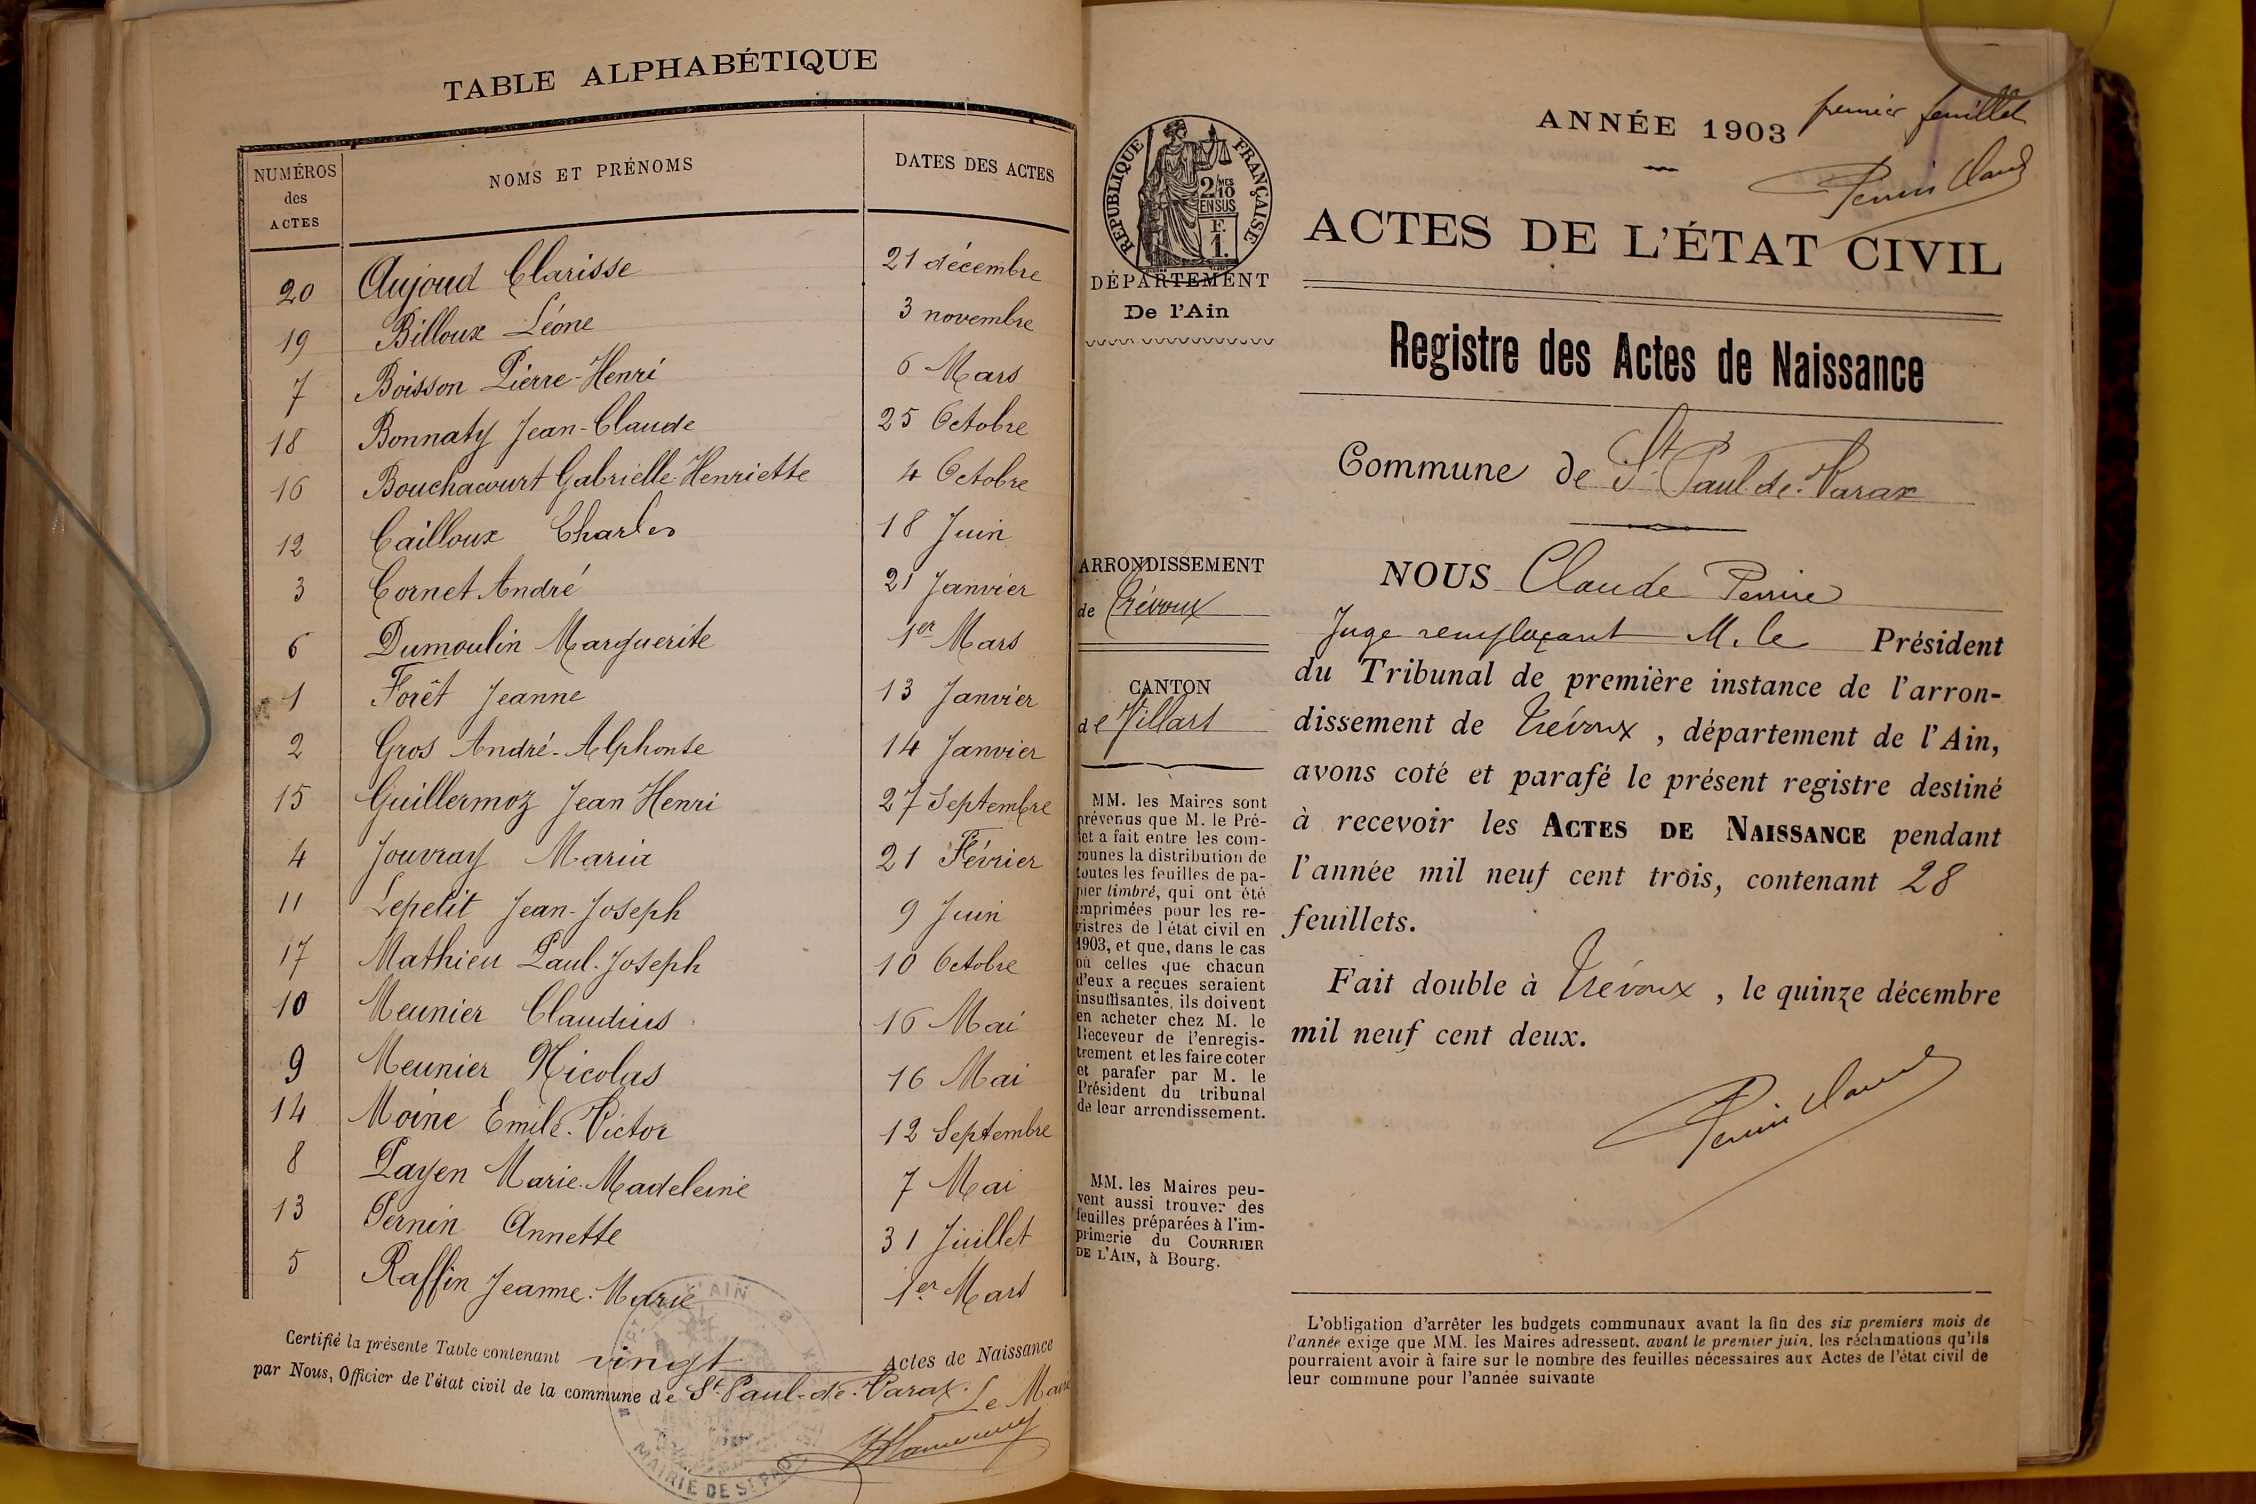 TABLE ALPHABÉTIQUE
NUMÉROS des ACTES
NOMS ET PRÉNOMS
DATES DES ACTES
20 Aujoud Clarisse 21 décembre
19 Billoux Léone 3 novembre
7 Boisson Pierre-Henri 6 Mars
18 Bonnaty Jean-Claude 25 Octobre
16 Bouchacourt Gabrielle-Henriette 4 Octobre
12 Cailloux Charles 18 Juin
3 Cornet André 21 Janvier
6 Dumoulin Marguerite 1er Mars
1 Forêt Jeanne 13 Janvier
2 Gros André-Alphonse 14 Janvier
15 Guillermoz Jean Henri 27 Septembre
4 Jouvray Maria 21 Février
11 Lepetit Jean-Joseph 9 Juin
17 Mathieu Paul-Joseph 10 Octobre
10 Meunier Claudius 16 Mai
9 Meunier Nicolas 16 Mai
14 Moine Emile-Victor 12 Septembre
8 Payen Marie-Madeleine 7 Mai
13 Pernin Annette 31 Juillet
5 Raffin Jeanne-Marie 1er Mars
Certifié la présente Table contenant vingt Actes de Naissance
par Nous, Officier de l'état civil de la commune de St Paul-de-Varax. Le Maire
MAIRIE DE ST PAUL
RÉPUBLIQUE FRANÇAISE
2/10 MES
EN SUS
F.
1.
DÉPARTEMENT
De l'Ain
ARRONDISSEMENT
de Trévoux
CANTON
de Villars
MM. les Maires sont
prévenus que M. le Pré-
fet a fait entre les com-
munes la distribution de
toutes les feuilles de pa-
pier timbré, qui ont été
imprimées pour les re-
gistres de l'état civil en
1903, et que, dans le cas
où celles que chacun
d'eux a reçues seraient
insuffisantes, ils doivent
en acheter chez M. le
Receveur de l'enregis-
trement et les faire coter
et parafer par M. le
Président du tribunal
de leur arrondissement.
MM. les Maires peu-
vent aussi trouver des
feuilles préparées à l'im-
primerie du COURRIER
DE L'AIN, à Bourg.
ANNÉE 1903
premier feuillet
Perrin Claude
ACTES DE L'ÉTAT CIVIL
Registre des Actes de Naissance
Commune de St Paul-de-Varax
NOUS Claude Perrin
Juge remplaçant M. le Président
du Tribunal de première instance de l'arron-
dissement de Trévoux, département de l'Ain,
avons coté et parafé le présent registre destiné
à recevoir les ACTES DE NAISSANCE pendant
l'année mil neuf cent trois, contenant 28
feuillets.
Fait double à Trévoux, le quinze décembre
mil neuf cent deux.
Perrin Claude
L'obligation d'arrêter les budgets communaux avant la fin des six premiers mois de
l'année exige que MM. les Maires adressent, avant le premier juin, les réclamations qu'ils
pourraient avoir à faire sur le nombre des feuilles nécessaires aux Actes de l'état civil de
leur commune pour l'année suivante